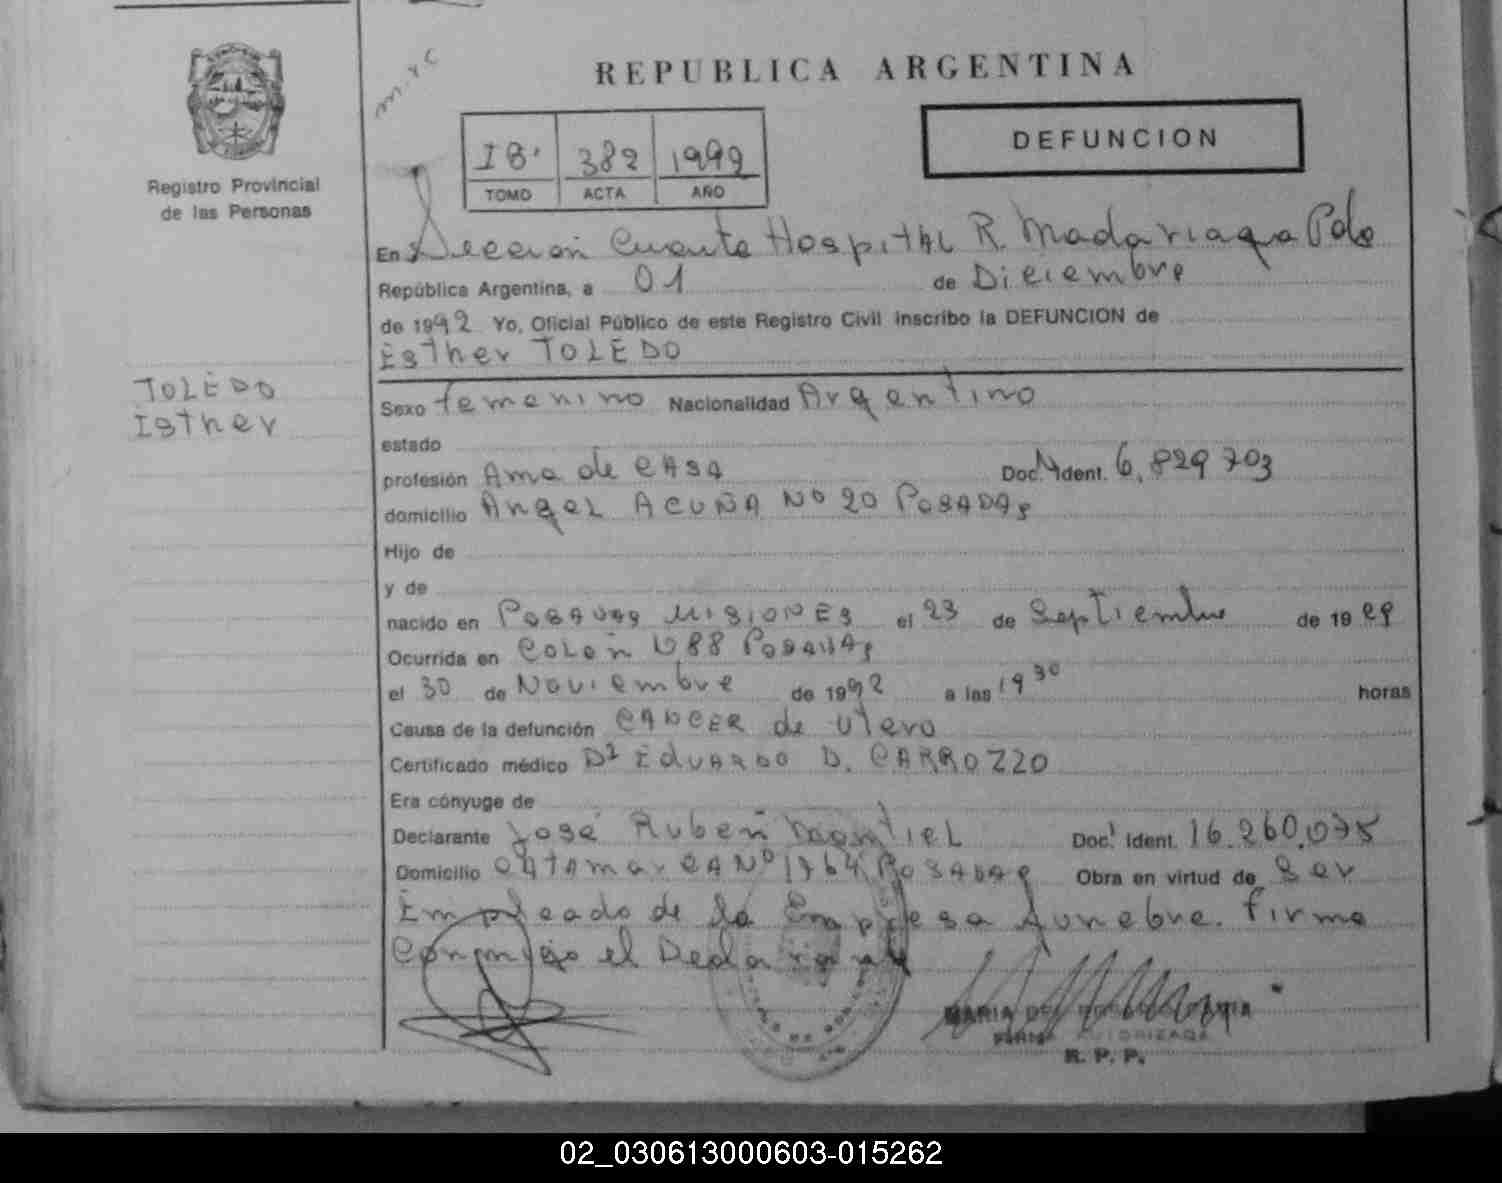 m.y.c
REPUBLICA ARGENTINA
DEFUNCION
IB. 382 1992
TOMO ACTA AÑO
Registro Provincial
de las Personas
En Sección Cuarta Hospital R. Madariaga Pdas
República Argentina, a 01 de Diciembre
de 1992 Yo, Oficial Público de este Registro Civil inscribo la DEFUNCION de
Esther TOLEDO
TOLEDO
Esther
Sexo femenino Nacionalidad Argentino
estado
profesión Ama de CASA Doc. Ident. 6.829 703
domicilio Angel ACUÑA Nº 20 POSADAS
Hijo de
y de
nacido en POSADAS MISIONES el 23 de Septiembre de 19
Ocurrida en Colón POSADAS
el 30 de Noviembre de 1992 a las 19 30 horas
Causa de la defunción CANCER de utero
Certificado médico Dr EDUARDO D. CARROZZO
Era cónyuge de
Declarante José Rubén Montiel Doc. Ident. 16.260.075
Domicilio CATAMARCA Nº 1764 POSADAS Obra en virtud de Ser
Empleado de la Empresa funebre. firma
Conmigo el Declarante
MARIA
FIRMA AUTORIZADA
R. P. P.
02_030613000603-015262